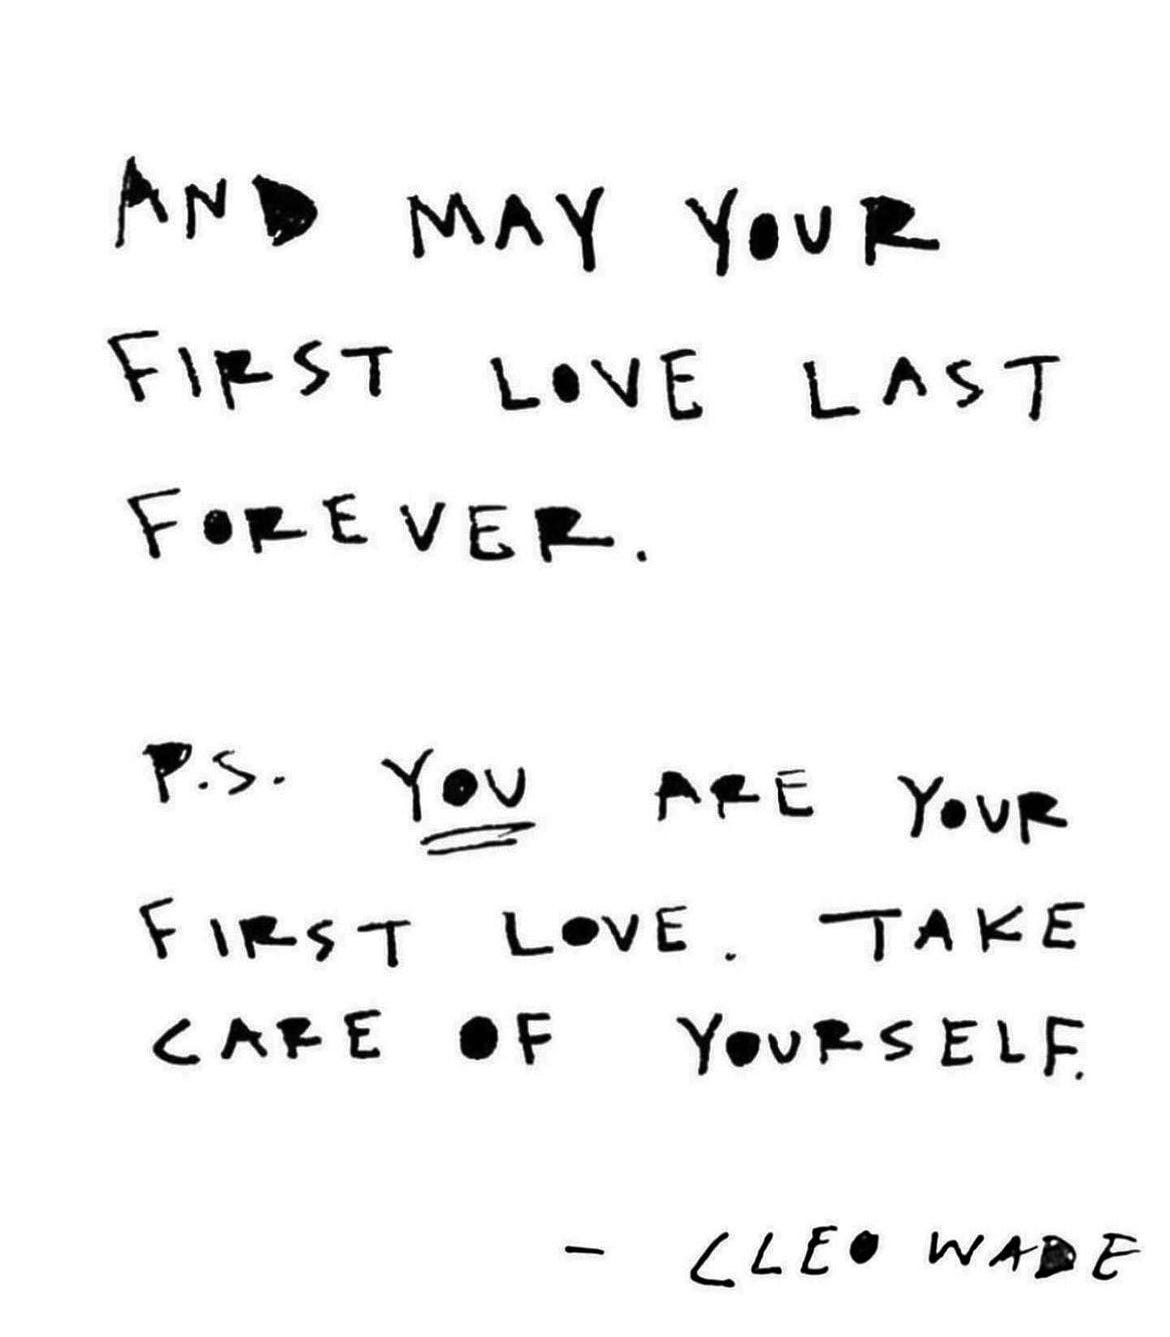 AND MAY YOUR
FIRST LOVE LAST
FOREVER.
P.S. YOU ARE YOUR
FIRST LOVE. TAKE
CARE OF YOURSELF.
- CLEO WADE